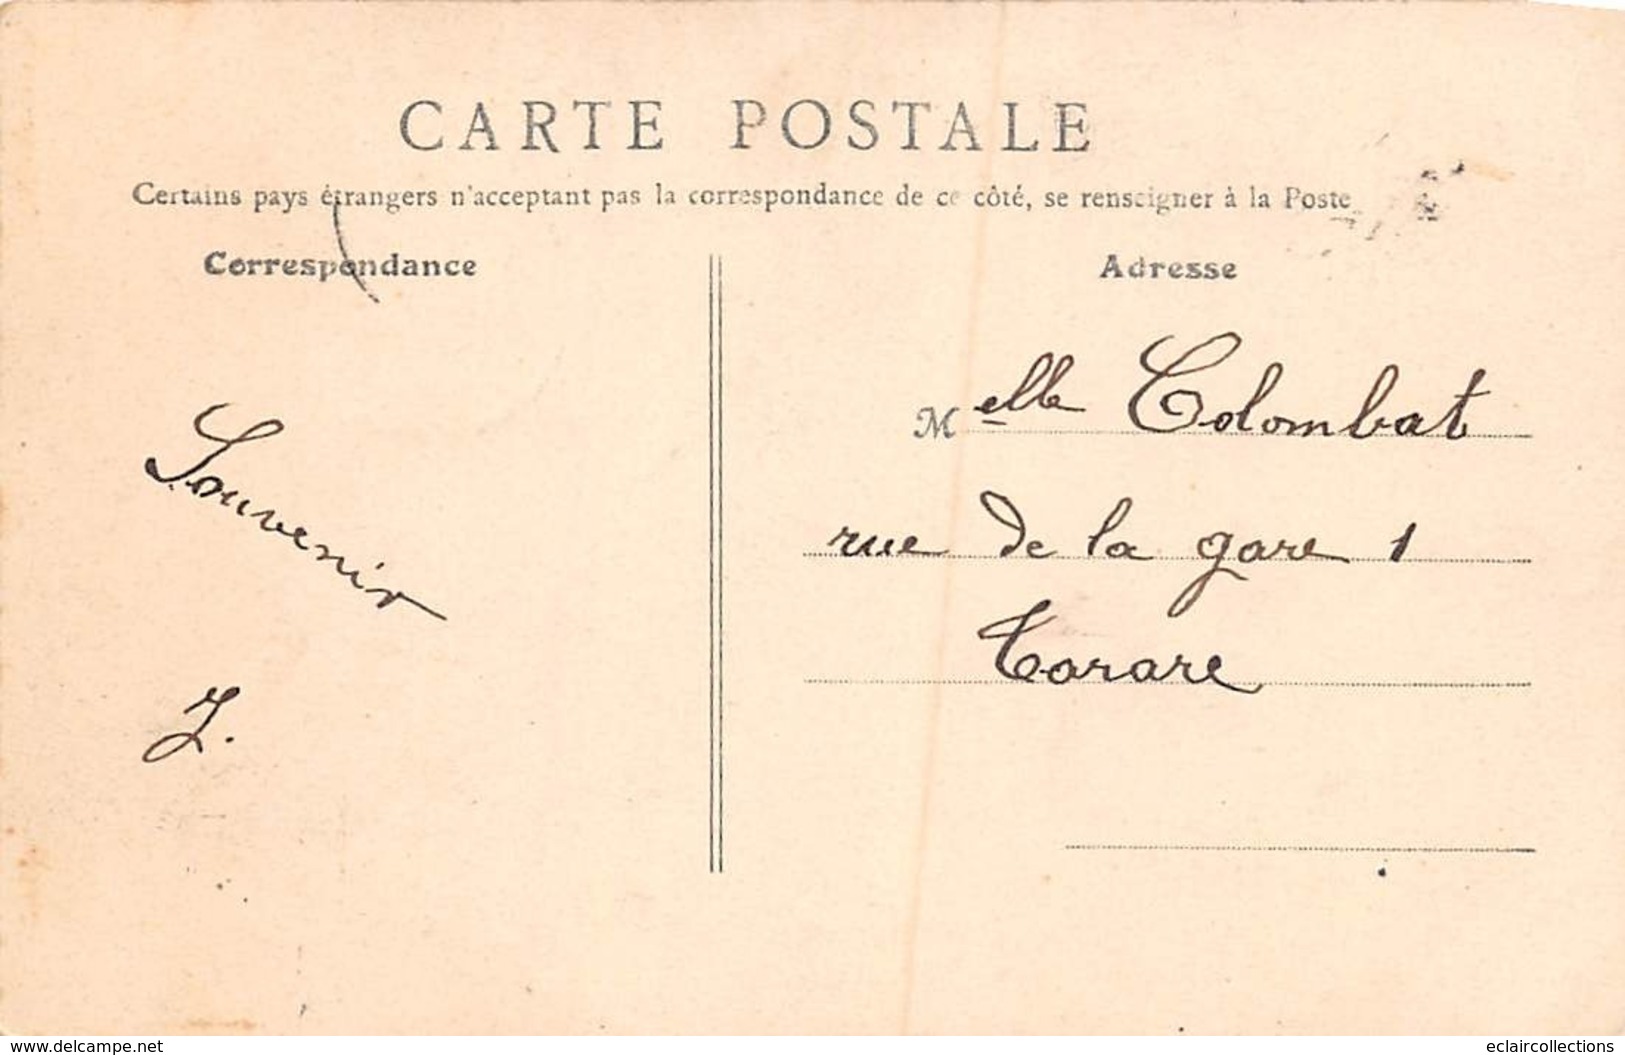 CARTE POSTALE
Certains pays étrangers n'acceptant pas la correspondance de ce côté, se renseigner à la Poste
Correspondance
Adresse
Melle Colombat
rue de la gare 1
Tarare
Souvenir
J.
www.delcampe.net
eclaircollections